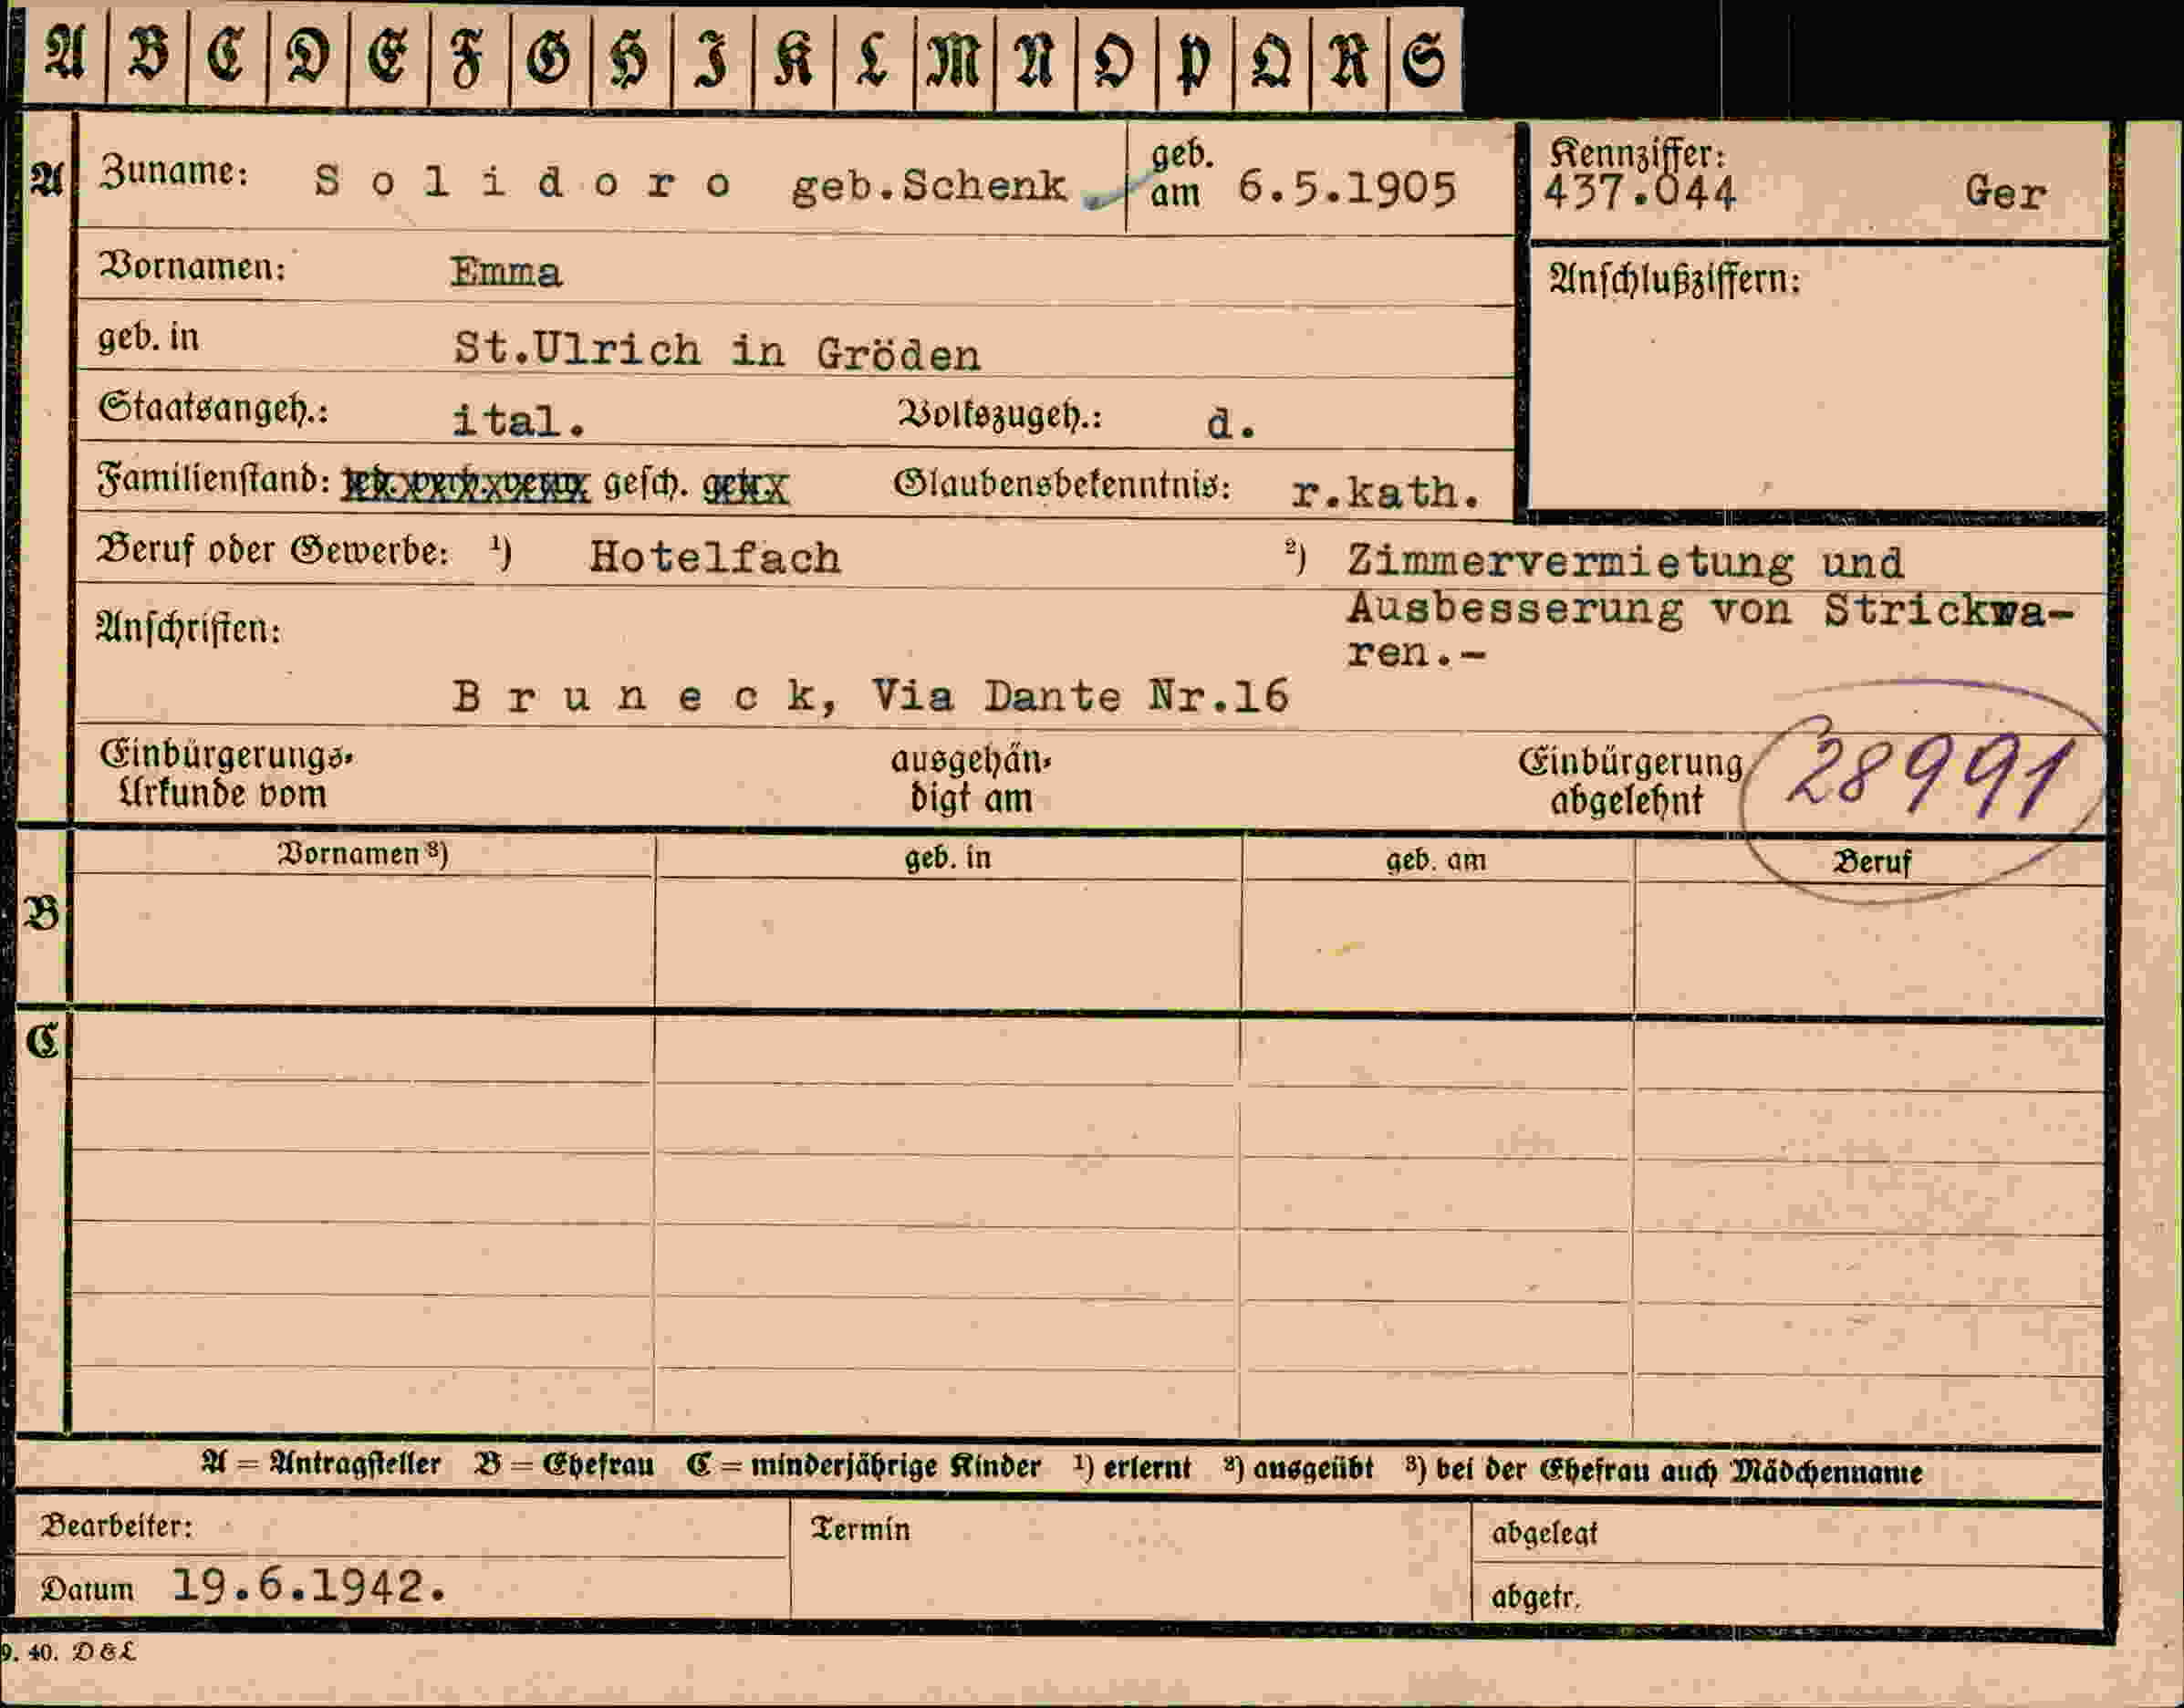 A B C D E F G H I K L M N O P Q R S
A Zuname: S o l i d o r o geb.Schenk geb. am 6.5.1905
Kennziffer:
437.044 Ger
Vornamen: Emma
Anschlußziffern:
geb. in St.Ulrich in Gröden
Staatsangeh.: ital. Volkszugeh.: d.
Familienstand: gesch. Glaubensbekenntnis: r.kath.
Beruf oder Gewerbe: ¹) Hotelfach ²) Zimmervermietung und
Ausbesserung von Strickwa-
ren.-
Anschriften:
B r u n e c k, Via Dante Nr.16
Einbürgerungs-
Urkunde vom
ausgehän-
digt am
Einbürgerung
abgelehnt
28991
Vornamen ³) geb. in geb. am Beruf
B
C
A = Antragsteller B = Ehefrau C = minderjährige Kinder ¹) erlernt ²) ausgeübt ³) bei der Ehefrau auch Mädchenname
Bearbeiter: Termin abgelegt
Datum 19.6.1942. abgetr.
9. 40. D&L